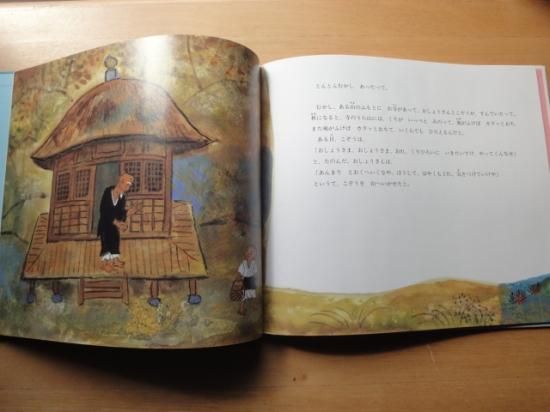 とんとんむかし あったって。
むかし、ある山のふもとに お寺があって、おしょうさんとこぞうが、すんでいたって。
秋になると、寺のうら山には、くりが いっぺえ みのって、風がふけば カタッとおち、
また風がふけば カタッとおちて、いくらでも ひろえるんだと。
ある日、こぞうは、
「おしょうさま、おしょうさま、おれ、くりひろいに いきたいすけ、やってくんなせ」
と、たのんだ。おしょうさんは、
「あんまり とおくへいくなや。ほうして、はやくもどれ。気をつけていけや」
というて、こぞうを 出してやったと。